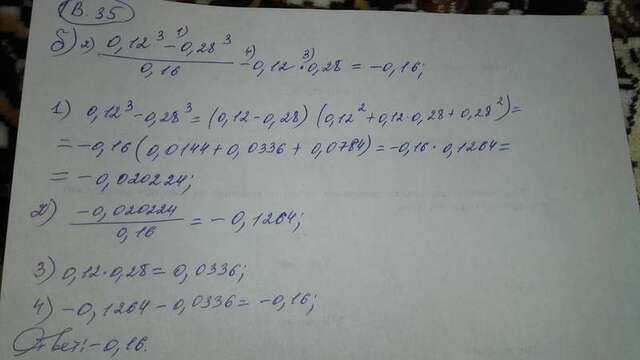 В. 35
б) 2) (0,12³ - ¹⁾ 0,28³) / 0,16 ⁴⁾ - 0,12 ³⁾ · 0,28 = -0,16;
1) 0,12³ - 0,28³ = (0,12 - 0,28) (0,12² + 0,12·0,28 + 0,28²) =
= -0,16 (0,0144 + 0,0336 + 0,0784) = -0,16 · 0,1264 =
= -0,020224;
2) -0,020224 / 0,16 = -0,1264;
3) 0,12·0,28 = 0,0336;
4) -0,1264 - 0,0336 = -0,16;
Ответ: -0,16.